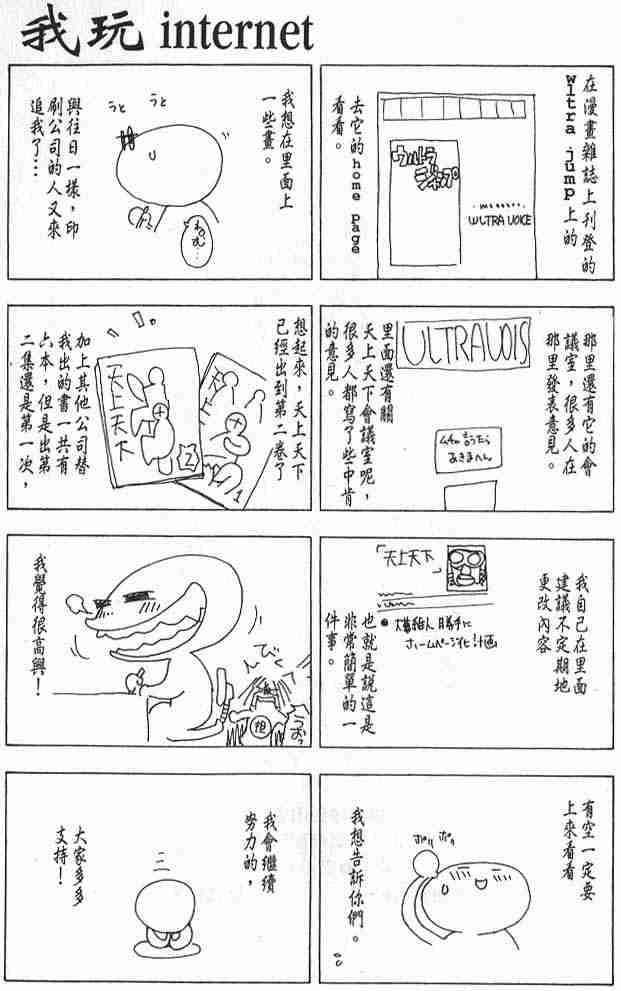 我玩 internet
在漫畫雜誌上刊登的
wltra jump上的
去它的home page
看看。
ウルトラ
ジャンプ
ULTRA VOICE
那里還有它的會
議室，很多人在
那里發表意見。
ULTRAVOIS
里面還有關
天上天下會議室呢，
很多人都寫了些中肯
的意見。
我自己在里面
建議不定期地
更改內容
「天上天下」
ホームページ化計画
也就是說這是
非常簡單的一
件事。
有空一定要
上來看看
ポリ ポリ
我想告訴你們。
我想在里面上
一些畫。
うと うと
與往日一樣，印
刷公司的人又來
追我了…
想起來，天上天下
已經出到第二卷了
天上天下
2
1
加上其他公司替
我出的書一共有
六本，但是出第
二集還是第一次，
我覺得很高興！
んでく
担
うおっ
我會繼續
努力的，
大家多多
支持！